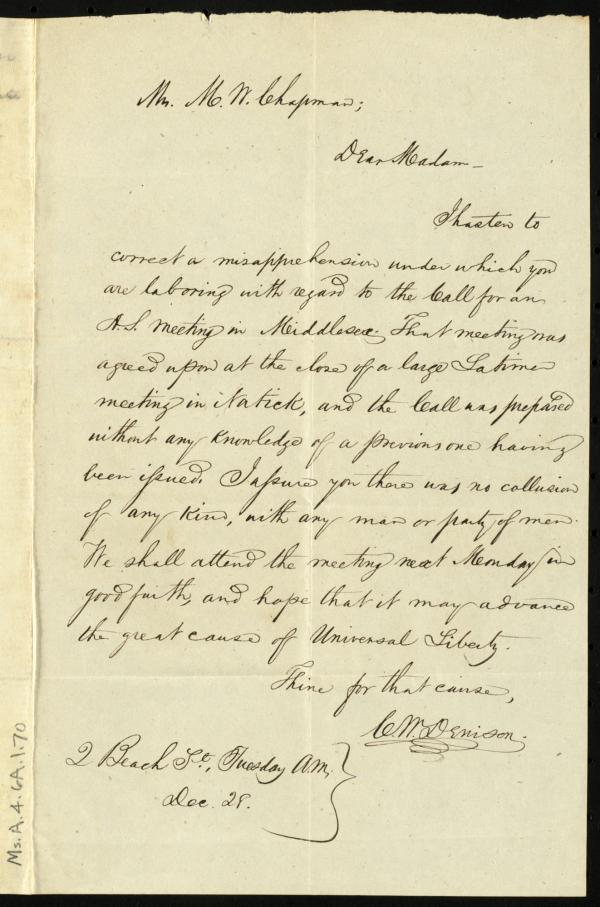 Mrs. M. W. Chapman;
Dear Madam—
I hasten to
correct a misapprehension under which you
are laboring with regard to the Call for an
A. S. meeting in Middlesex. That meeting was
agreed upon at the close of a large Latimer
meeting in Natick, and the Call was prepared
without any knowledge of a previous one having
been issued. I assure you there was no collusion
of any kind, with any man or party of men.
We shall attend the meeting next Monday in
good faith, and hope that it may advance
the great cause of Universal Liberty.
Thine for that cause,
C. W. Denison.
2 Beach St., Tuesday A.M.
Dec. 29.
Ms. A. 4. 6A. 1. 70